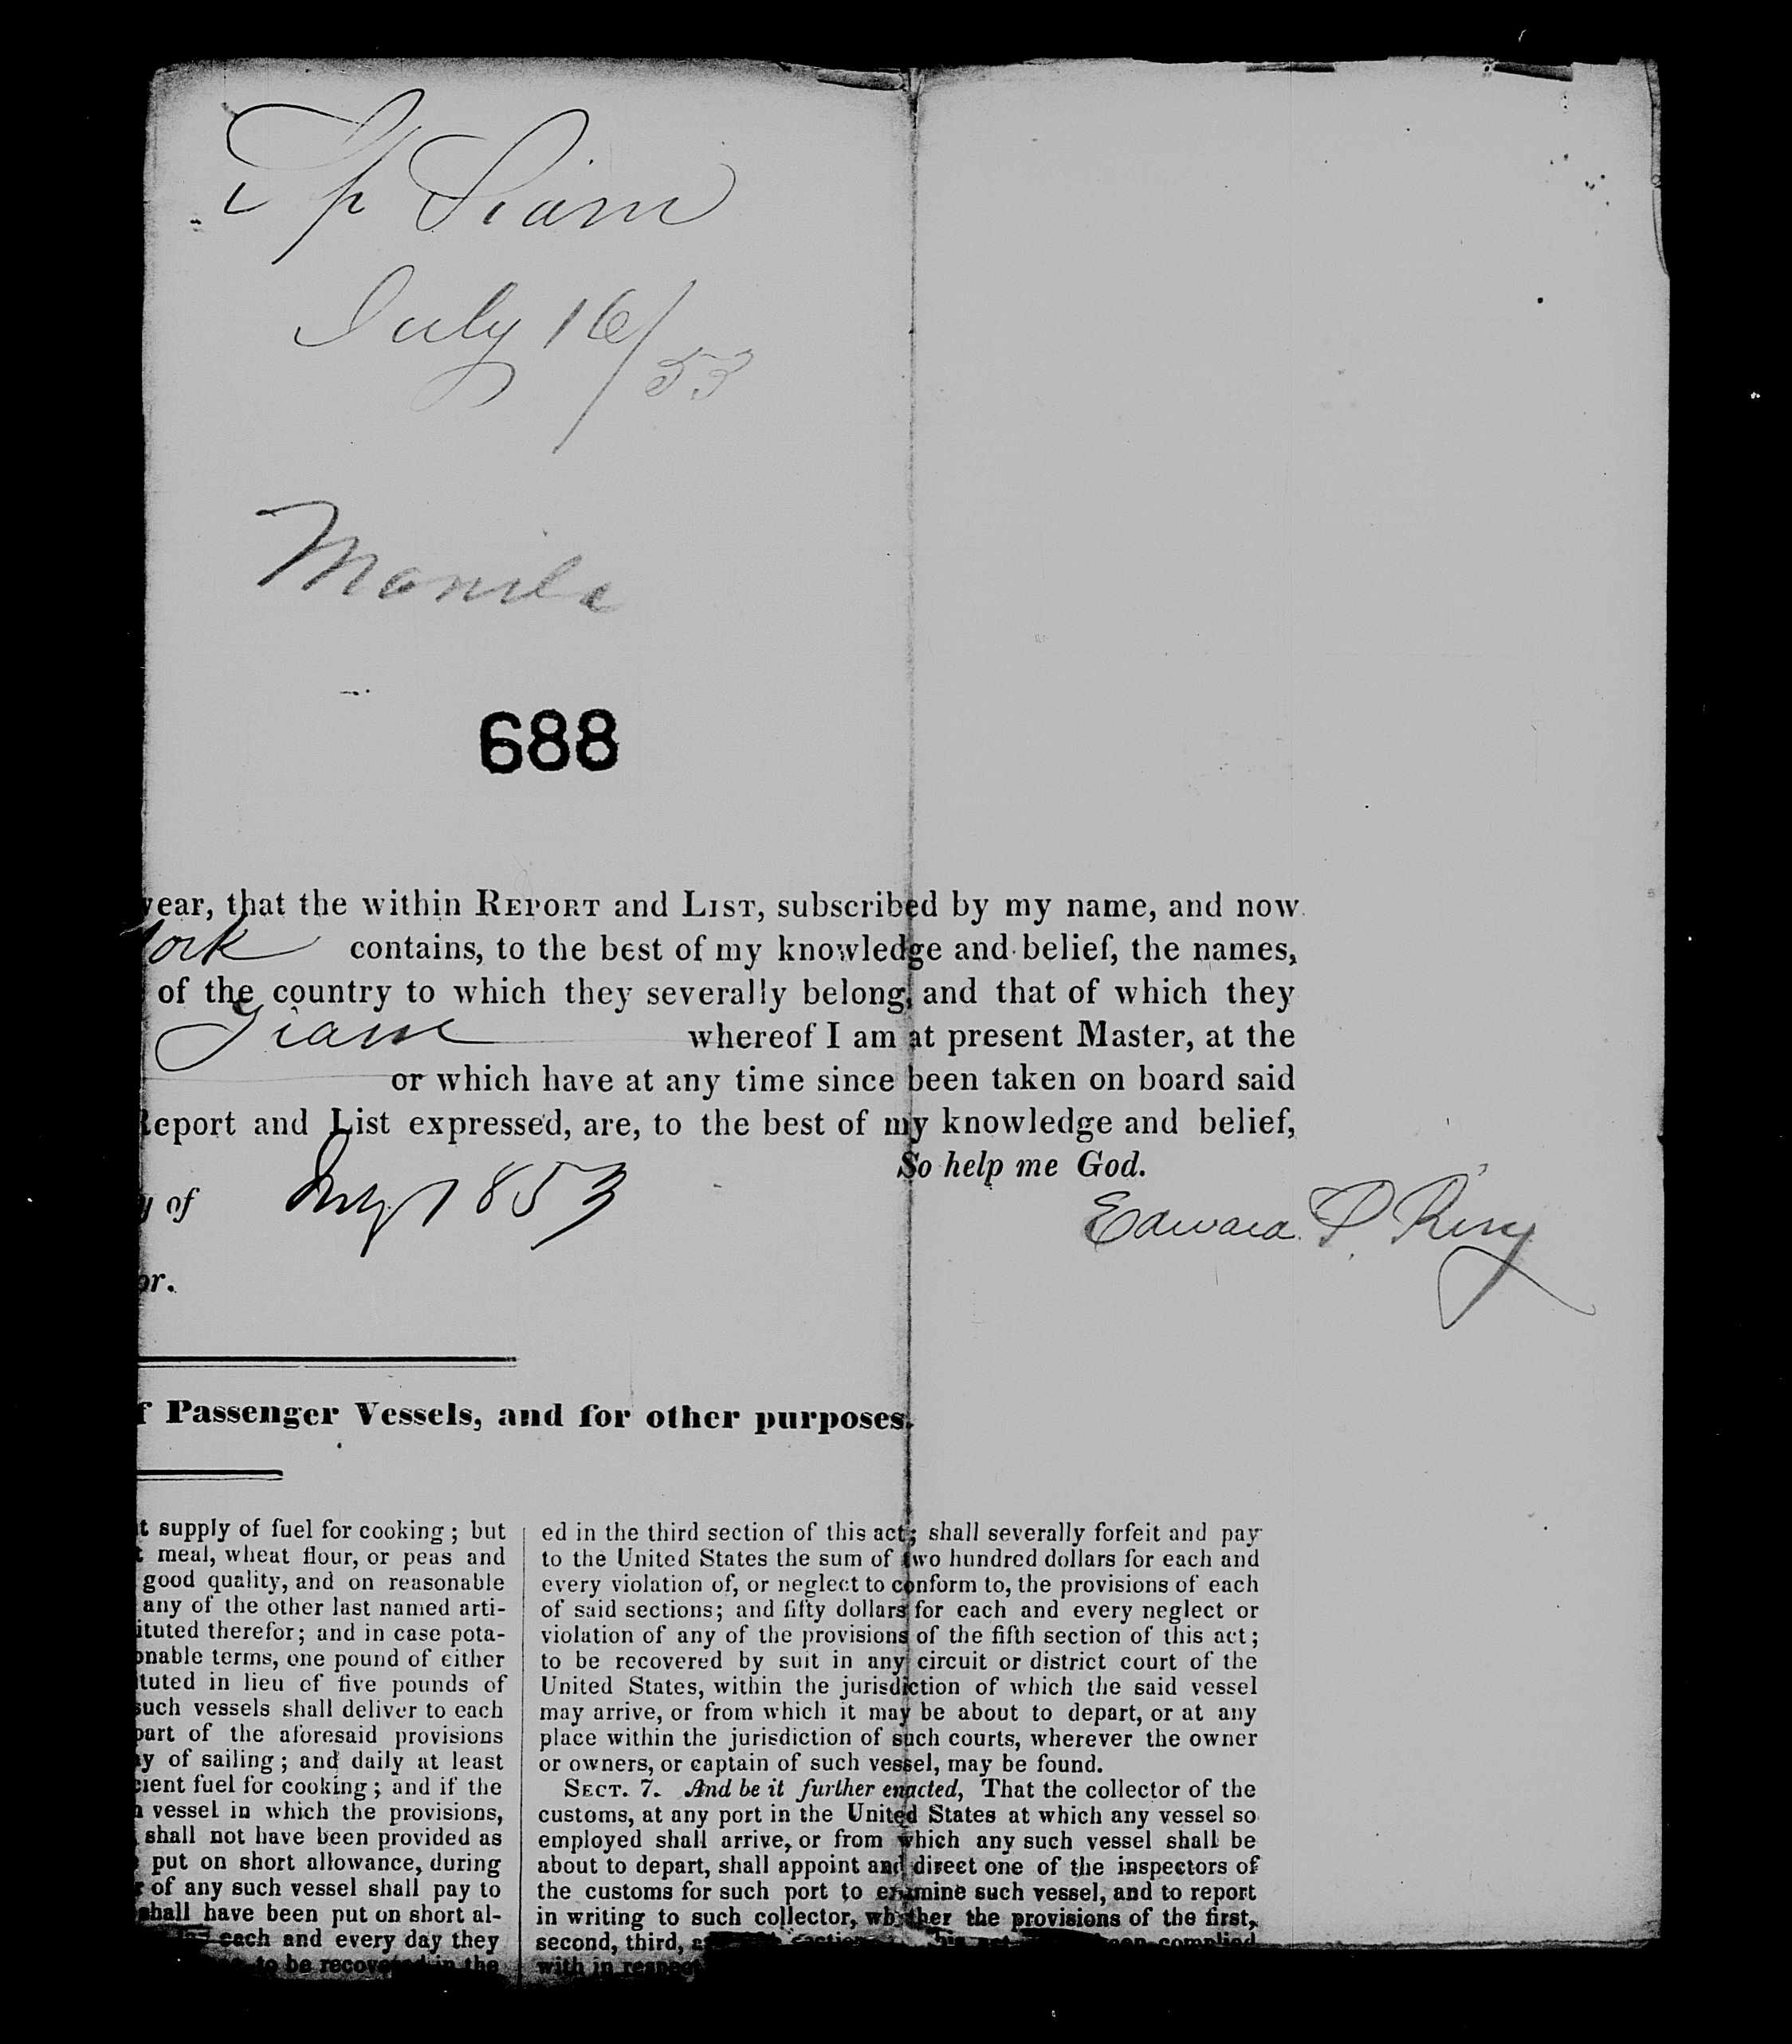 Sp Siam
July 16/53
Manila
688
year, that the within REPORT and LIST, subscribed by my name, and now
York contains, to the best of my knowledge and belief, the names,
of the country to which they severally belong, and that of which they
Siam whereof I am at present Master, at the
or which have at any time since been taken on board said
Report and List expressed, are, to the best of my knowledge and belief,
So help me God.
y of July 1853
Edward P.
or.
f Passenger Vessels, and for other purposes.
t supply of fuel for cooking; but
meal, wheat flour, or peas and
good quality, and on reasonable
any of the other last named arti-
ituted therefor; and in case pota-
onable terms, one pound of either
ituted in lieu of five pounds of
such vessels shall deliver to each
part of the aforesaid provisions
ay of sailing; and daily at least
cient fuel for cooking; and if the
vessel in which the provisions,
shall not have been provided as
put on short allowance, during
of any such vessel shall pay to
shall have been put on short al-
each and every day they
to be recovered in the
ed in the third section of this act; shall severally forfeit and pay
to the United States the sum of two hundred dollars for each and
every violation of, or neglect to conform to, the provisions of each
of said sections; and fifty dollars for each and every neglect or
violation of any of the provisions of the fifth section of this act;
to be recovered by suit in any circuit or district court of the
United States, within the jurisdiction of which the said vessel
may arrive, or from which it may be about to depart, or at any
place within the jurisdiction of such courts, wherever the owner
or owners, or captain of such vessel, may be found.
SECT. 7. And be it further enacted, That the collector of the
customs, at any port in the United States at which any vessel so
employed shall arrive, or from which any such vessel shall be
about to depart, shall appoint and direct one of the inspectors of
the customs for such port to examine such vessel, and to report
in writing to such collector, whether the provisions of the first,
second, third, complied
with in respect